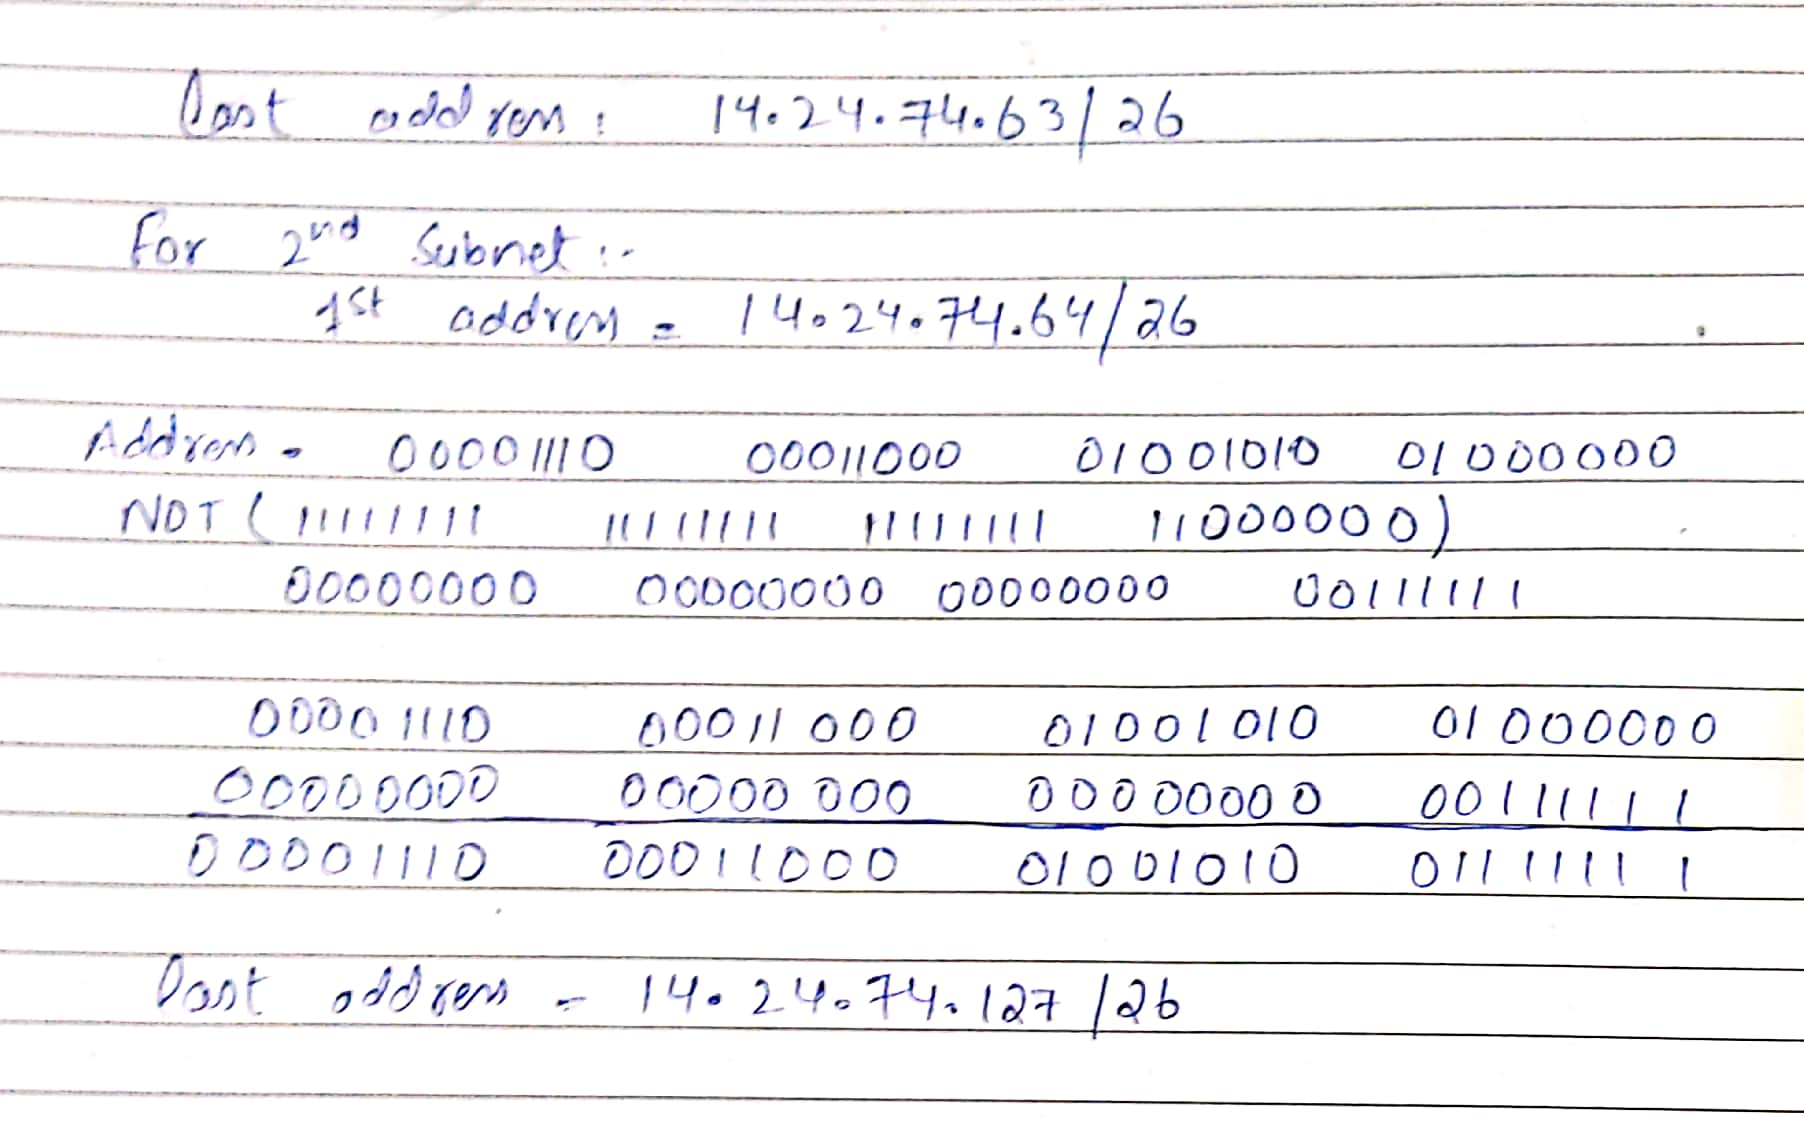 Last address : 14.24.74.63/26
For 2nd Subnet :-
1st address = 14.24.74.64/26
Address = 00001110 00011000 01001010 01000000
NOT ( 11111111 11111111 11111111 11000000)
00000000 00000000 00000000 00111111
00001110 00011000 01001010 01000000
00000000 00000000 00000000 00111111
00001110 00011000 01001010 01111111
Last address = 14.24.74.127/26